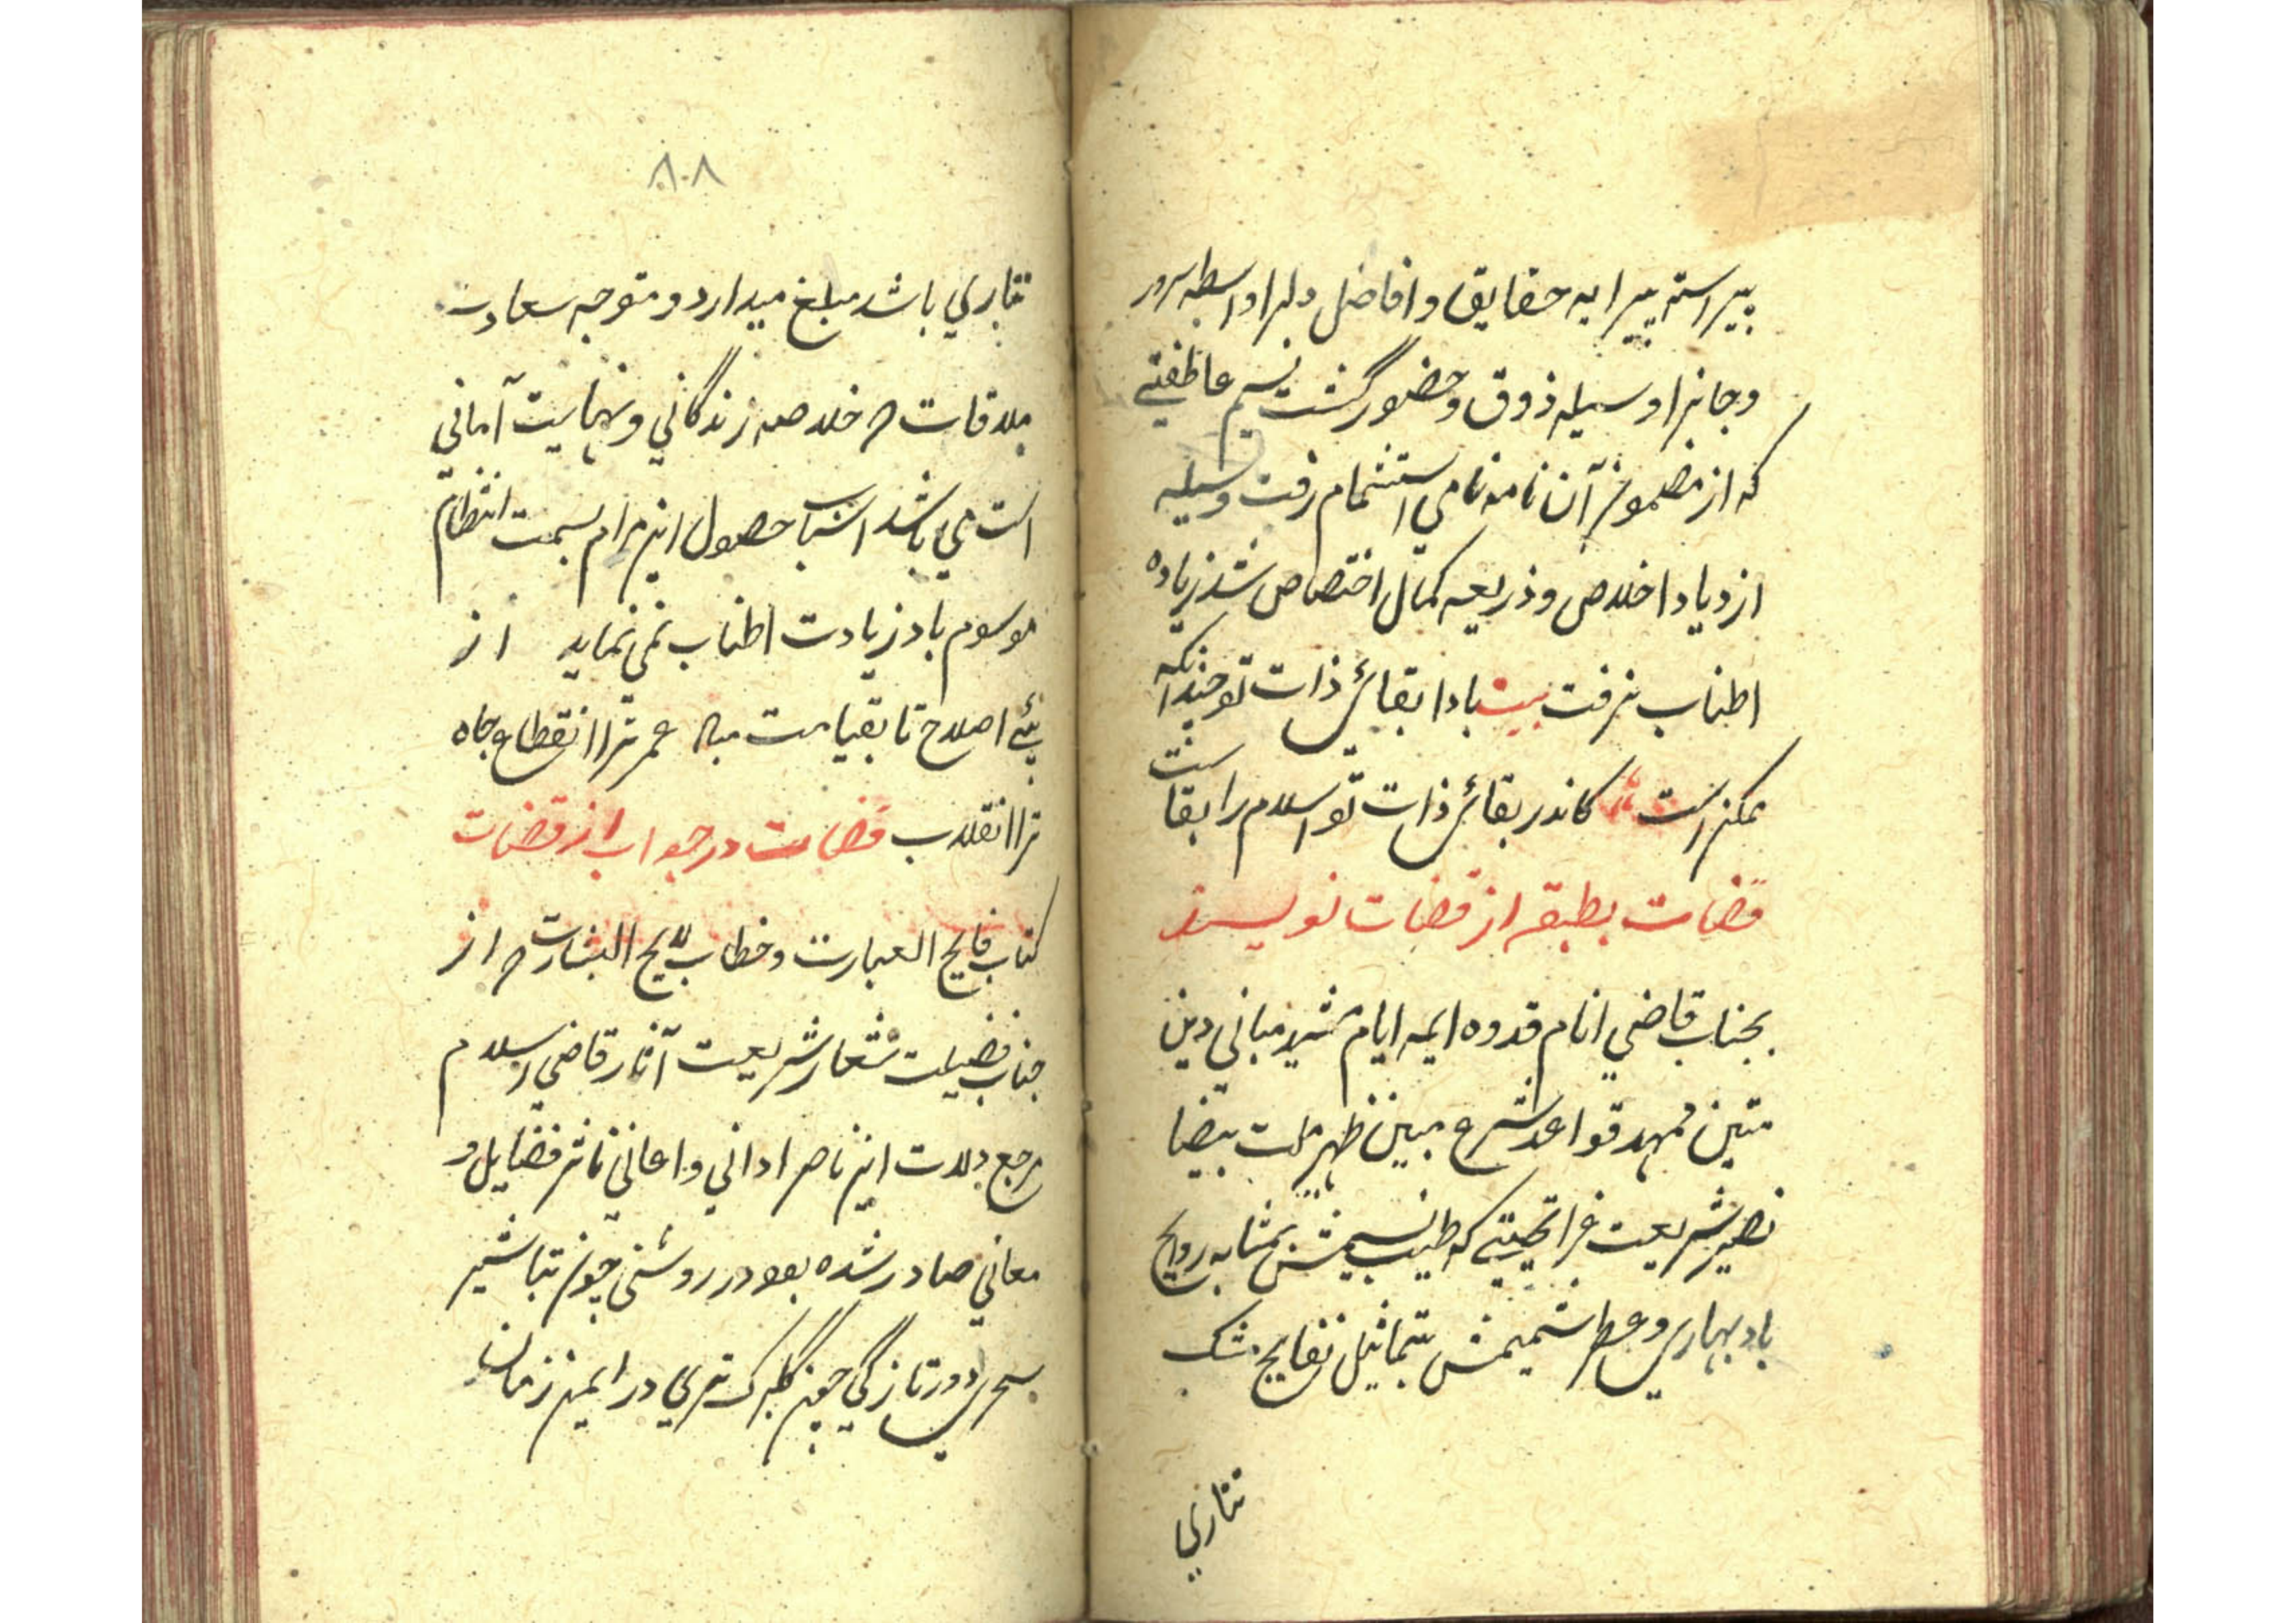 بپیراسته پیرایه حقایق و افاضل دلرا واسطه سرور
و جانرا وسیله ذوق و حضور گشت نسیم عاطفتی
که از مضمون آن نامه نامی استشمام رفت وسیله
ازدیاد اخلاص و ذریعه کمال اختصاص شد زیاده
اطناب نرفت بیت بادا بقائی ذات تو چندانکه
ممکن است کاندر بقائی ذات تو اسلام را بقاست
قضات بطبقه از قضات نویسند
بجناب قاضی انام قدوه ایمه ایام مشید مبانی دین
متین ممهد قواعد شرع مبین ظهیر ملت بیضا
نصیر شریعت غرا تحیتی که طیب نسیمش بمثابه روایح
باد بهاری و عطر شمیمش بتماثیل نفایح مشک
تتاری
۸۰۸
تتاری باشد مبلغ میدارد و متوجه سعادت
ملاقات که خلاصه زندگانی و نهایت آمانی
است می باشد اسباب حصول این مرام بسمت انتظام
موسوم باد زیادت اطناب نمی نماید از
پئے اصلاح تا بقیامت مباد عمر ترا انقطاع و جاه
ترا انقلاب قضات در جواب از قضات
کتاب فایح العبارت و خطاب لایح البشارت که از
جناب فضیلت شعار شریعت آثار قاضی اسلام
مرجع ولات این ناصر ادانی و اعانی ناشر فضایل و
معانی صادر شده بود در روشنی چون تباشیر
سحری و در تازگی چون گلبرک تری در ایمن زمان